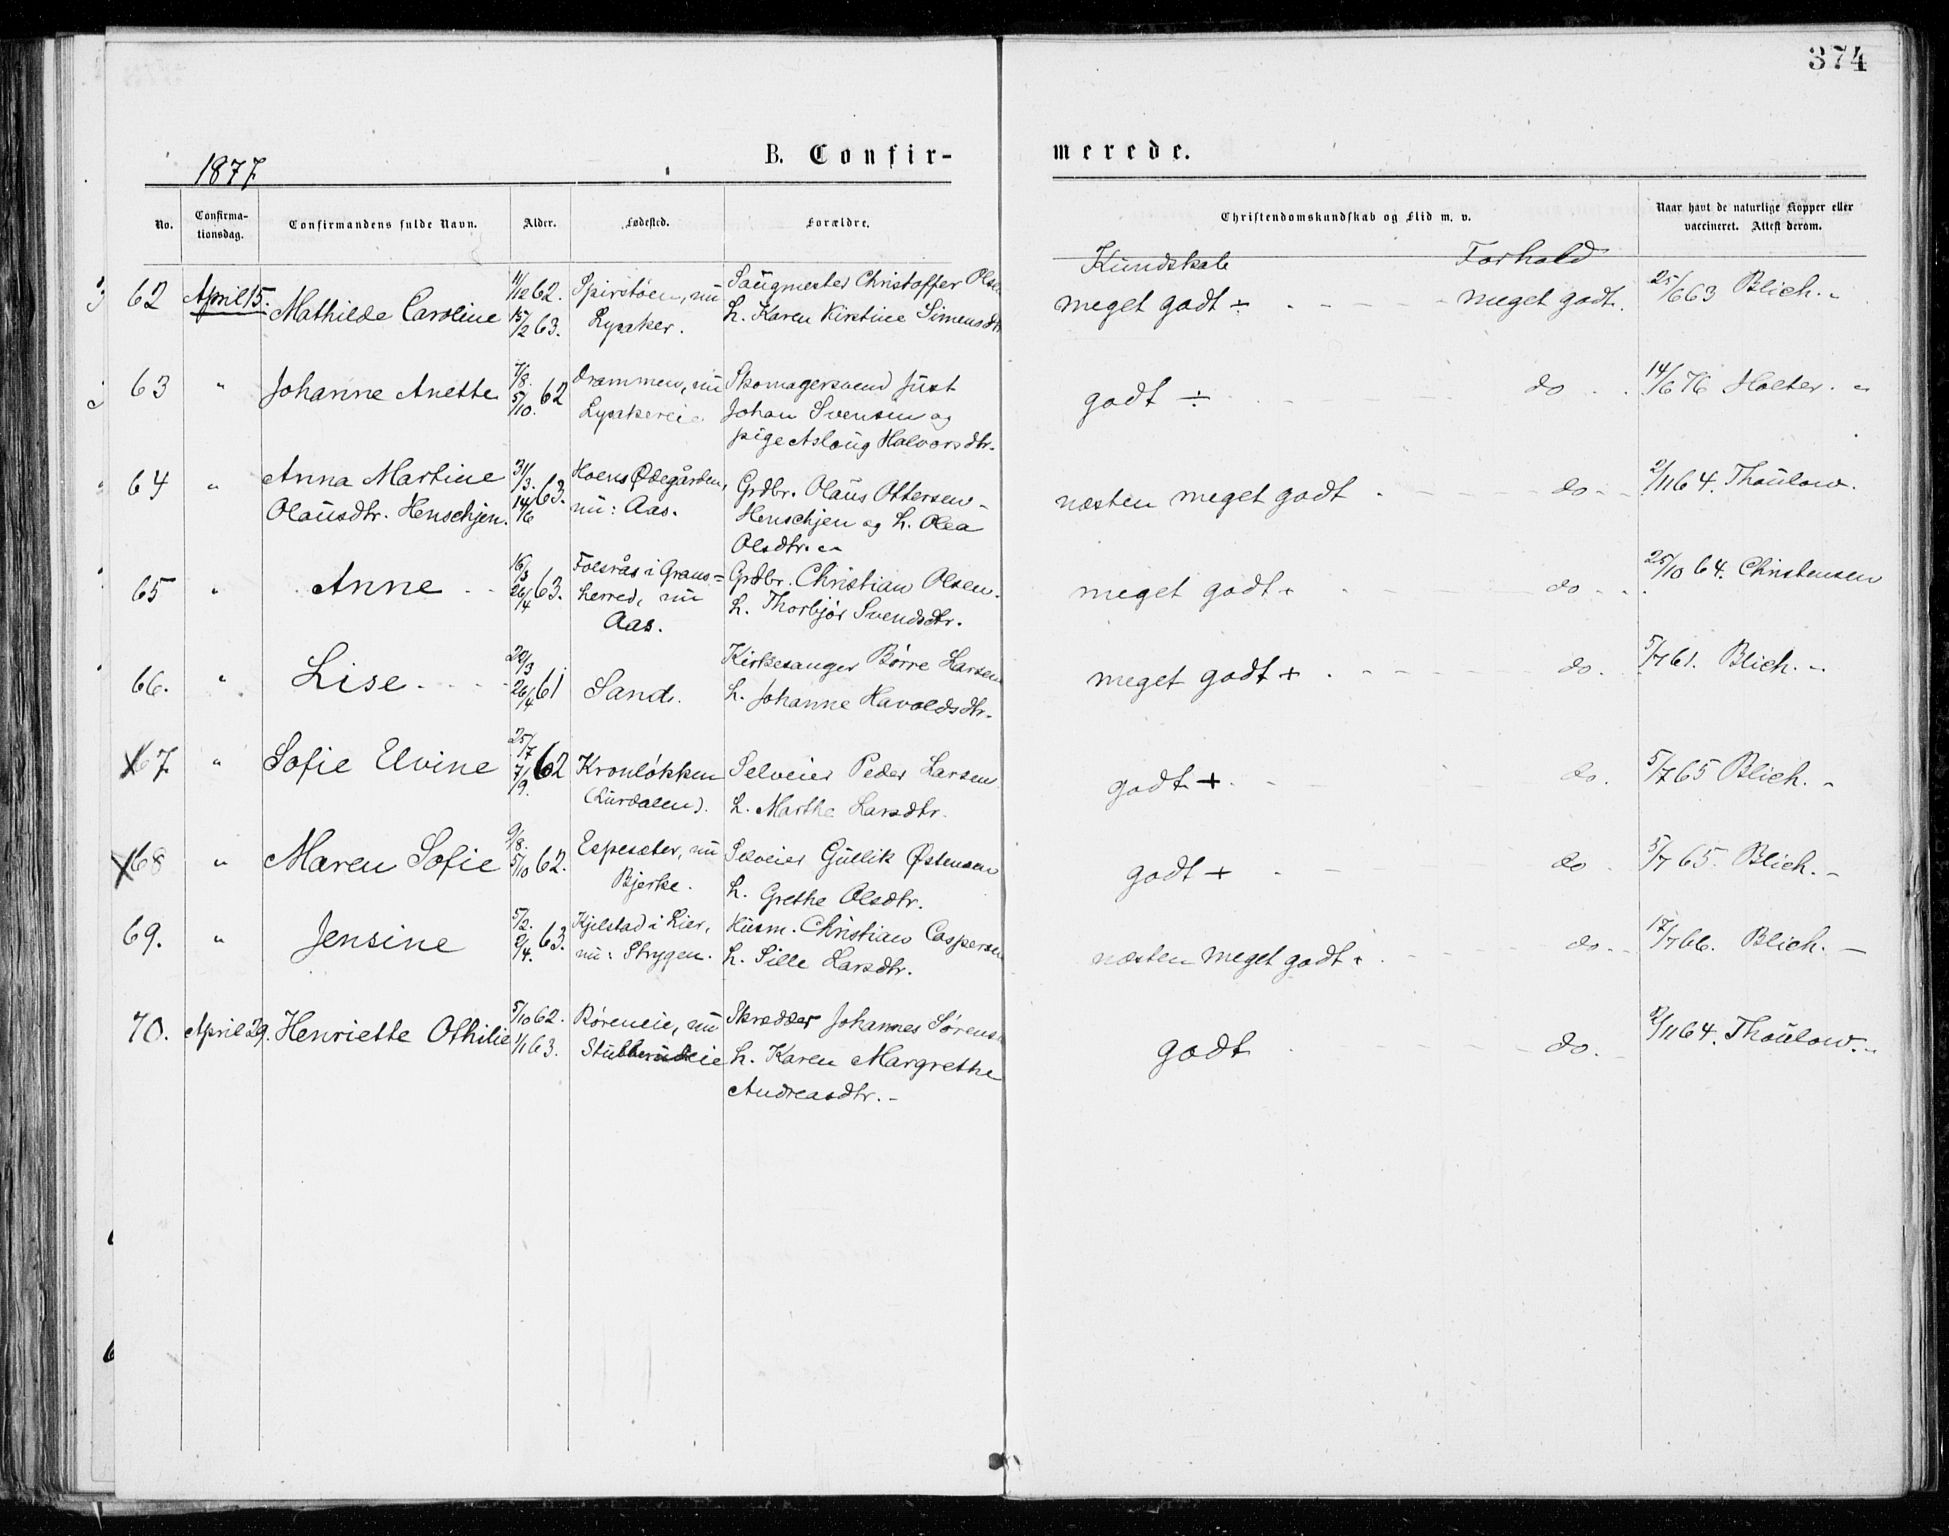 374
1877.
B. Confir-
merede.
No.
Confirma-
tionsdag.
Confirmandens fulde Navn.
Alder.
Fødested.
Forældre.
Christendomskundskab og Flid m. v.
Naar havt de naturlige Kopper eller
vaccineret. Attest derom.
Kundskab
Forhold
62 April 15. Mathilde Caroline
11/12 62.
15/2 63.
Spirstøen, nu
Lysaker.
Saugmester Christoffer Olsen
h. Karen Kirstine Simensdtr
meget godt ÷ - - - - - meget godt.
25/6 63 Blich. "
63 " Johanne Anette
7/8.
5/10. 62
Drammen, nu
Lysakereie
Skomagersvend Just
Johan Svensen og
pige Aslaug Halvorsdtr.
godt ÷ - - - - do
14/6 76 Holter. "
64 " Anna Martine
Olausdtr. Henschjen.
31/3.
14/6 63.
Hoens Ødegården,
nu: Aas.
Grdbr. Olaus Ottersen
Henschjen og h. Olea
Olsdtr. "
næsten meget godt - - - - do -
2/11 64. Thaulow.
65 " Anne
16/3
26/4 63.
Folsrås i Grans=
herred, nu
Aas.
Grdbr. Christian Olsen.
h. Thorbjør Svendsdtr.
meget godt + - - - - do -
25/10 64. Christensen
66. " Lise
20/3
26/4 61
Sand.
Kirkesanger Børre Larsen
h. Johanne Havoldsdtr.
meget godt + - - - - do.
5/7 61. Blich. "
67. " Sofie Elvine
25/7
7/9. 62
Kronløkken
(Lurdalen).
Selveier Peder Larsen
h. Marthe Larsdtr.
godt + - - do.
5/7 65 Blich. -
68 " Maren Sofie
9/8.
5/10 62.
Espesæter, nu
Bjerke.
Selveier Gullik Østensen
h. Grethe Olsdtr.
godt + - - do
5/7 65. Blich. -
69. " Jensine
5/2.
2/4. 63.
Kjelstad i Lier,
nu: Strygen.
Husm. Christian Caspersen
h. Sille Larsdtr.
næsten meget godt + - - do.
17/7 66. Blich. -
70. April 29. Henriette Othilie
5/10 62.
1/1 63.
Børeneie, nu
Stubberudeie
Skrædder Johannes Sørensen
h. Karen Margrethe
Andreasdtr. -
godt - - - - do.
2/11 64. Thaulow. "